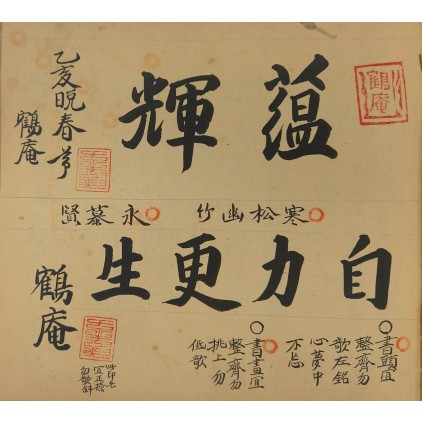 蘊輝
鶴庵
乙亥晚春
鶴庵
寒松幽竹
永慕賢
自力更生
鶴庵
書頭宜
整齊勿
歌左銘
心夢中
不忘
書畫宜
整齊勿
挑上勿
低歌